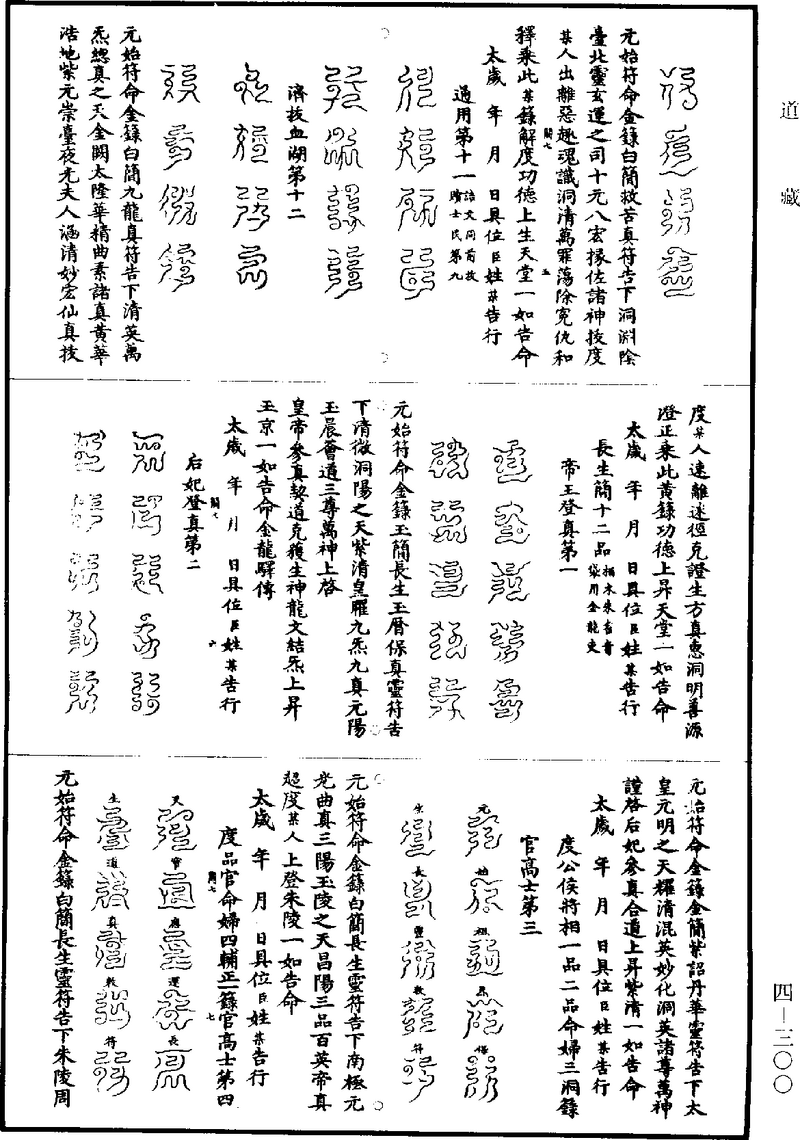 道藏
四—三〇〇
元始符命金籙白簡救苦真符告下洞淵陰
臺北靈玄運之司十元八宏掾佐諸神拔度
某人出離惡趣魂識洞清萬罪蕩除冤仇和
釋乘此某籙解度功德上生天堂一如告命
太歲年月日具位臣姓某告行
通用第十一
濟拔血湖第十二
元始符命金籙白簡九龍真符告下清英萬
炁總真之天金闕太隆華精曲素諸真黃華
浩地紫元崇臺夜光夫人涵清妙宏仙真拔
度某人速離迷徑克證生方真惠洞明善源
澄正乘此黃籙功德上昇天堂一如告命
太歲年月日具位臣姓某告行
長生簡十二品
帝王登真第一
元始符命金籙玉簡長生玉曆保真靈符告
下清微洞陽之天紫清皇曜九炁九真元陽
玉晨蒼道三尊萬神上啓
皇帝參真契道克獲生神龍文結炁上昇
玉京一如告命金龍驛傳
太歲年月日具位臣姓某告行
后妃登真第二
元始符命金籙金簡紫詔丹華靈符告下太
皇元明之天耀清混英妙化洞英諸尊萬神
謹啓后妃參真合道上昇紫清一如告命
太歲年月日具位臣姓某告行
度公侯將相一品二品命婦三洞籙
官高士第三
元始符命金籙白簡長生靈符告下南極元
光曲真三陽玉陵之天昌陽三品百英帝真
超度某人上登朱陵一如告命
太歲年月日具位臣姓某告行
度品官命婦四輔正一籙官高士第四
元始符命金籙白簡長生靈符告下朱陵周